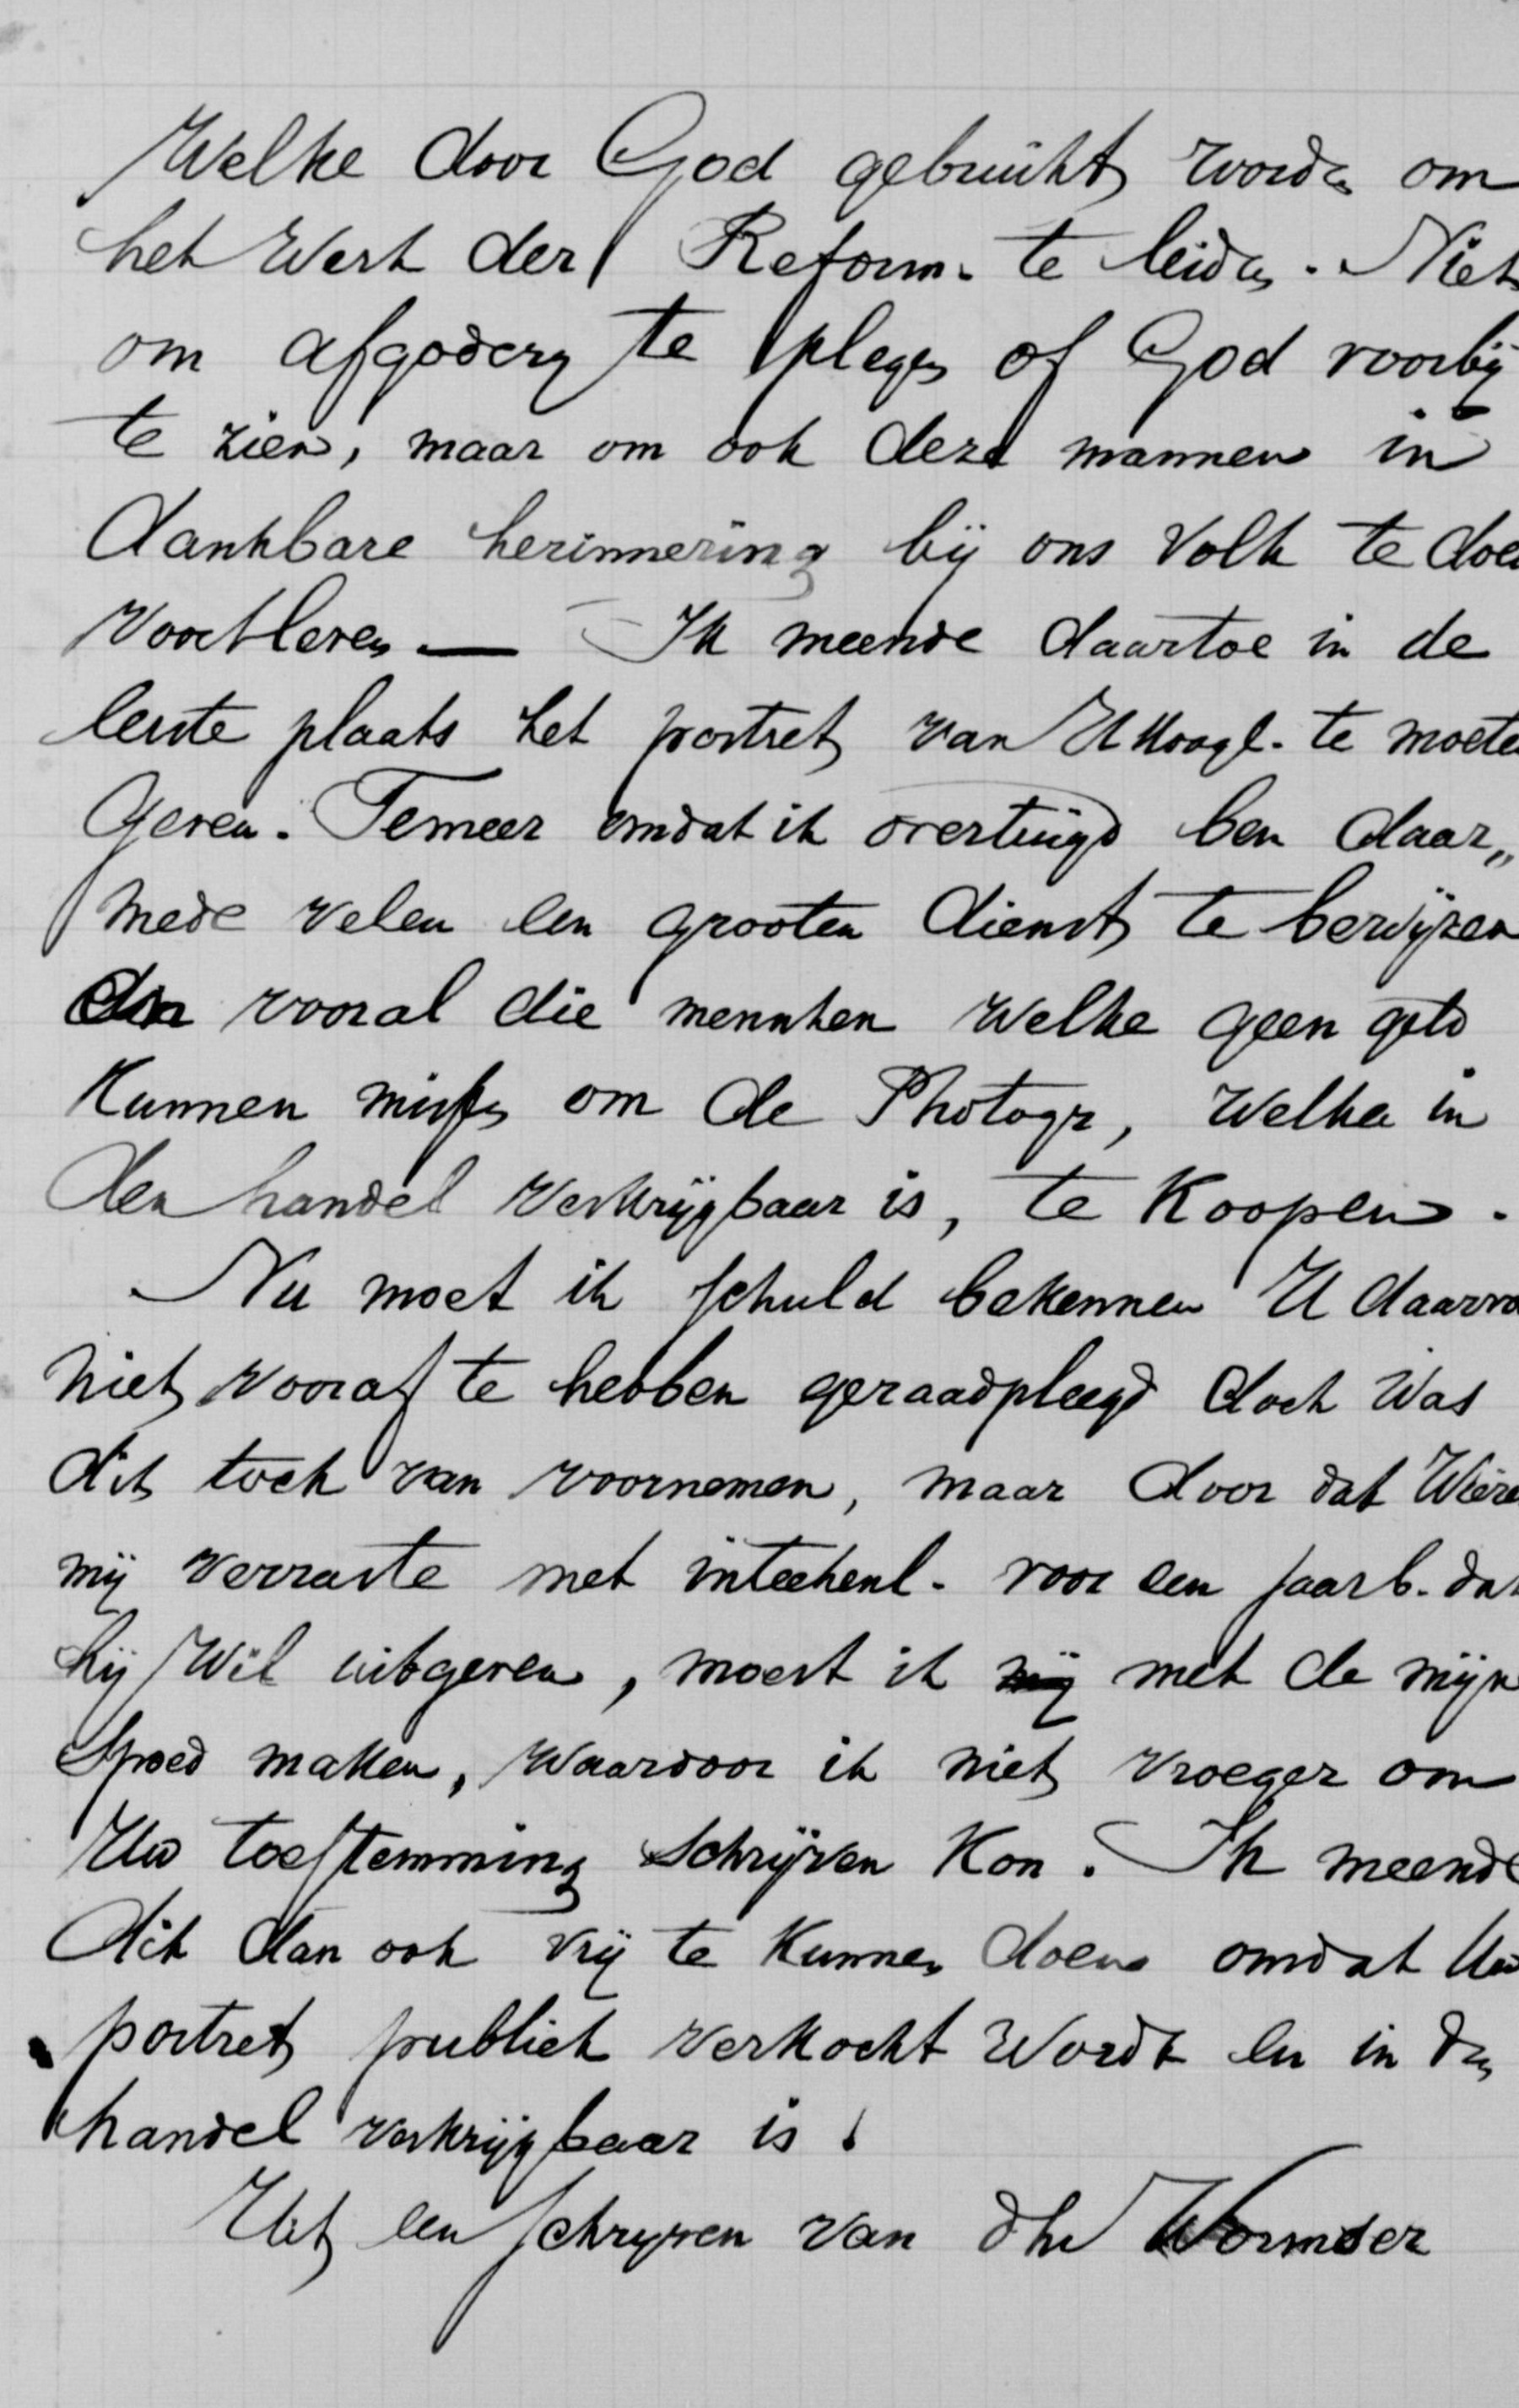 Welke door God gebruikt worden om
het Werk der Reform. te leiden. Niet
om afgodery te plegen of God voorbij
te zien, maar om ook deze mannen in
dankbare herinnering bij ons Volk te doen
Voortleven — Ik meende daartoe in de
eerste plaats het portret van UHoogl. te moeten
Geven. Temeer omdat ik overtuigd ben daar„
mede velen een grooten dienst te bewijzen
en vooral die menschen Welke geen geld
Kunnen missen om de Photogr, Welke in
den handel Verkrijgbaar is, te Koopen.
Nu moet ik schuld bekennen U daarvo
niet vooraf te hebben geraadpleegd doch Was
dit toch van voornemen, maar door dat
mij verraste met inteekenl. voor een jaarb. dat
hij Wil uitgeven, moest ik mij met de mijn
Spoed maken, Waardoor ik niet Vroeger om
Uw toestemming Schrijven Kon. Ik meende
dit dan ook Vrij te Kunnen doen omdat Uw
portret publiek verkocht Wordt en in den
handel Verkrijgbaar is.
Uit een schryven van dhr Wormser